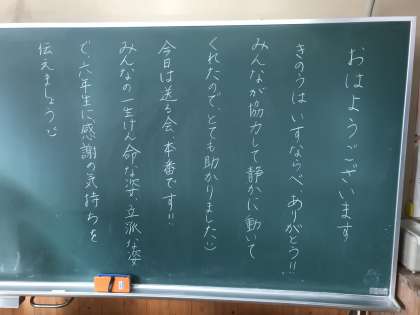 おはようございます
きのうは いすならべ、ありがとう!!
みんなが協力して静かに動いて
くれたので、とても助かりました:)
今日は送る会、本番です!!
みんなの一生けん命な姿、立派な姿
で、六年生に感謝の気持ちを
伝えましょう:)